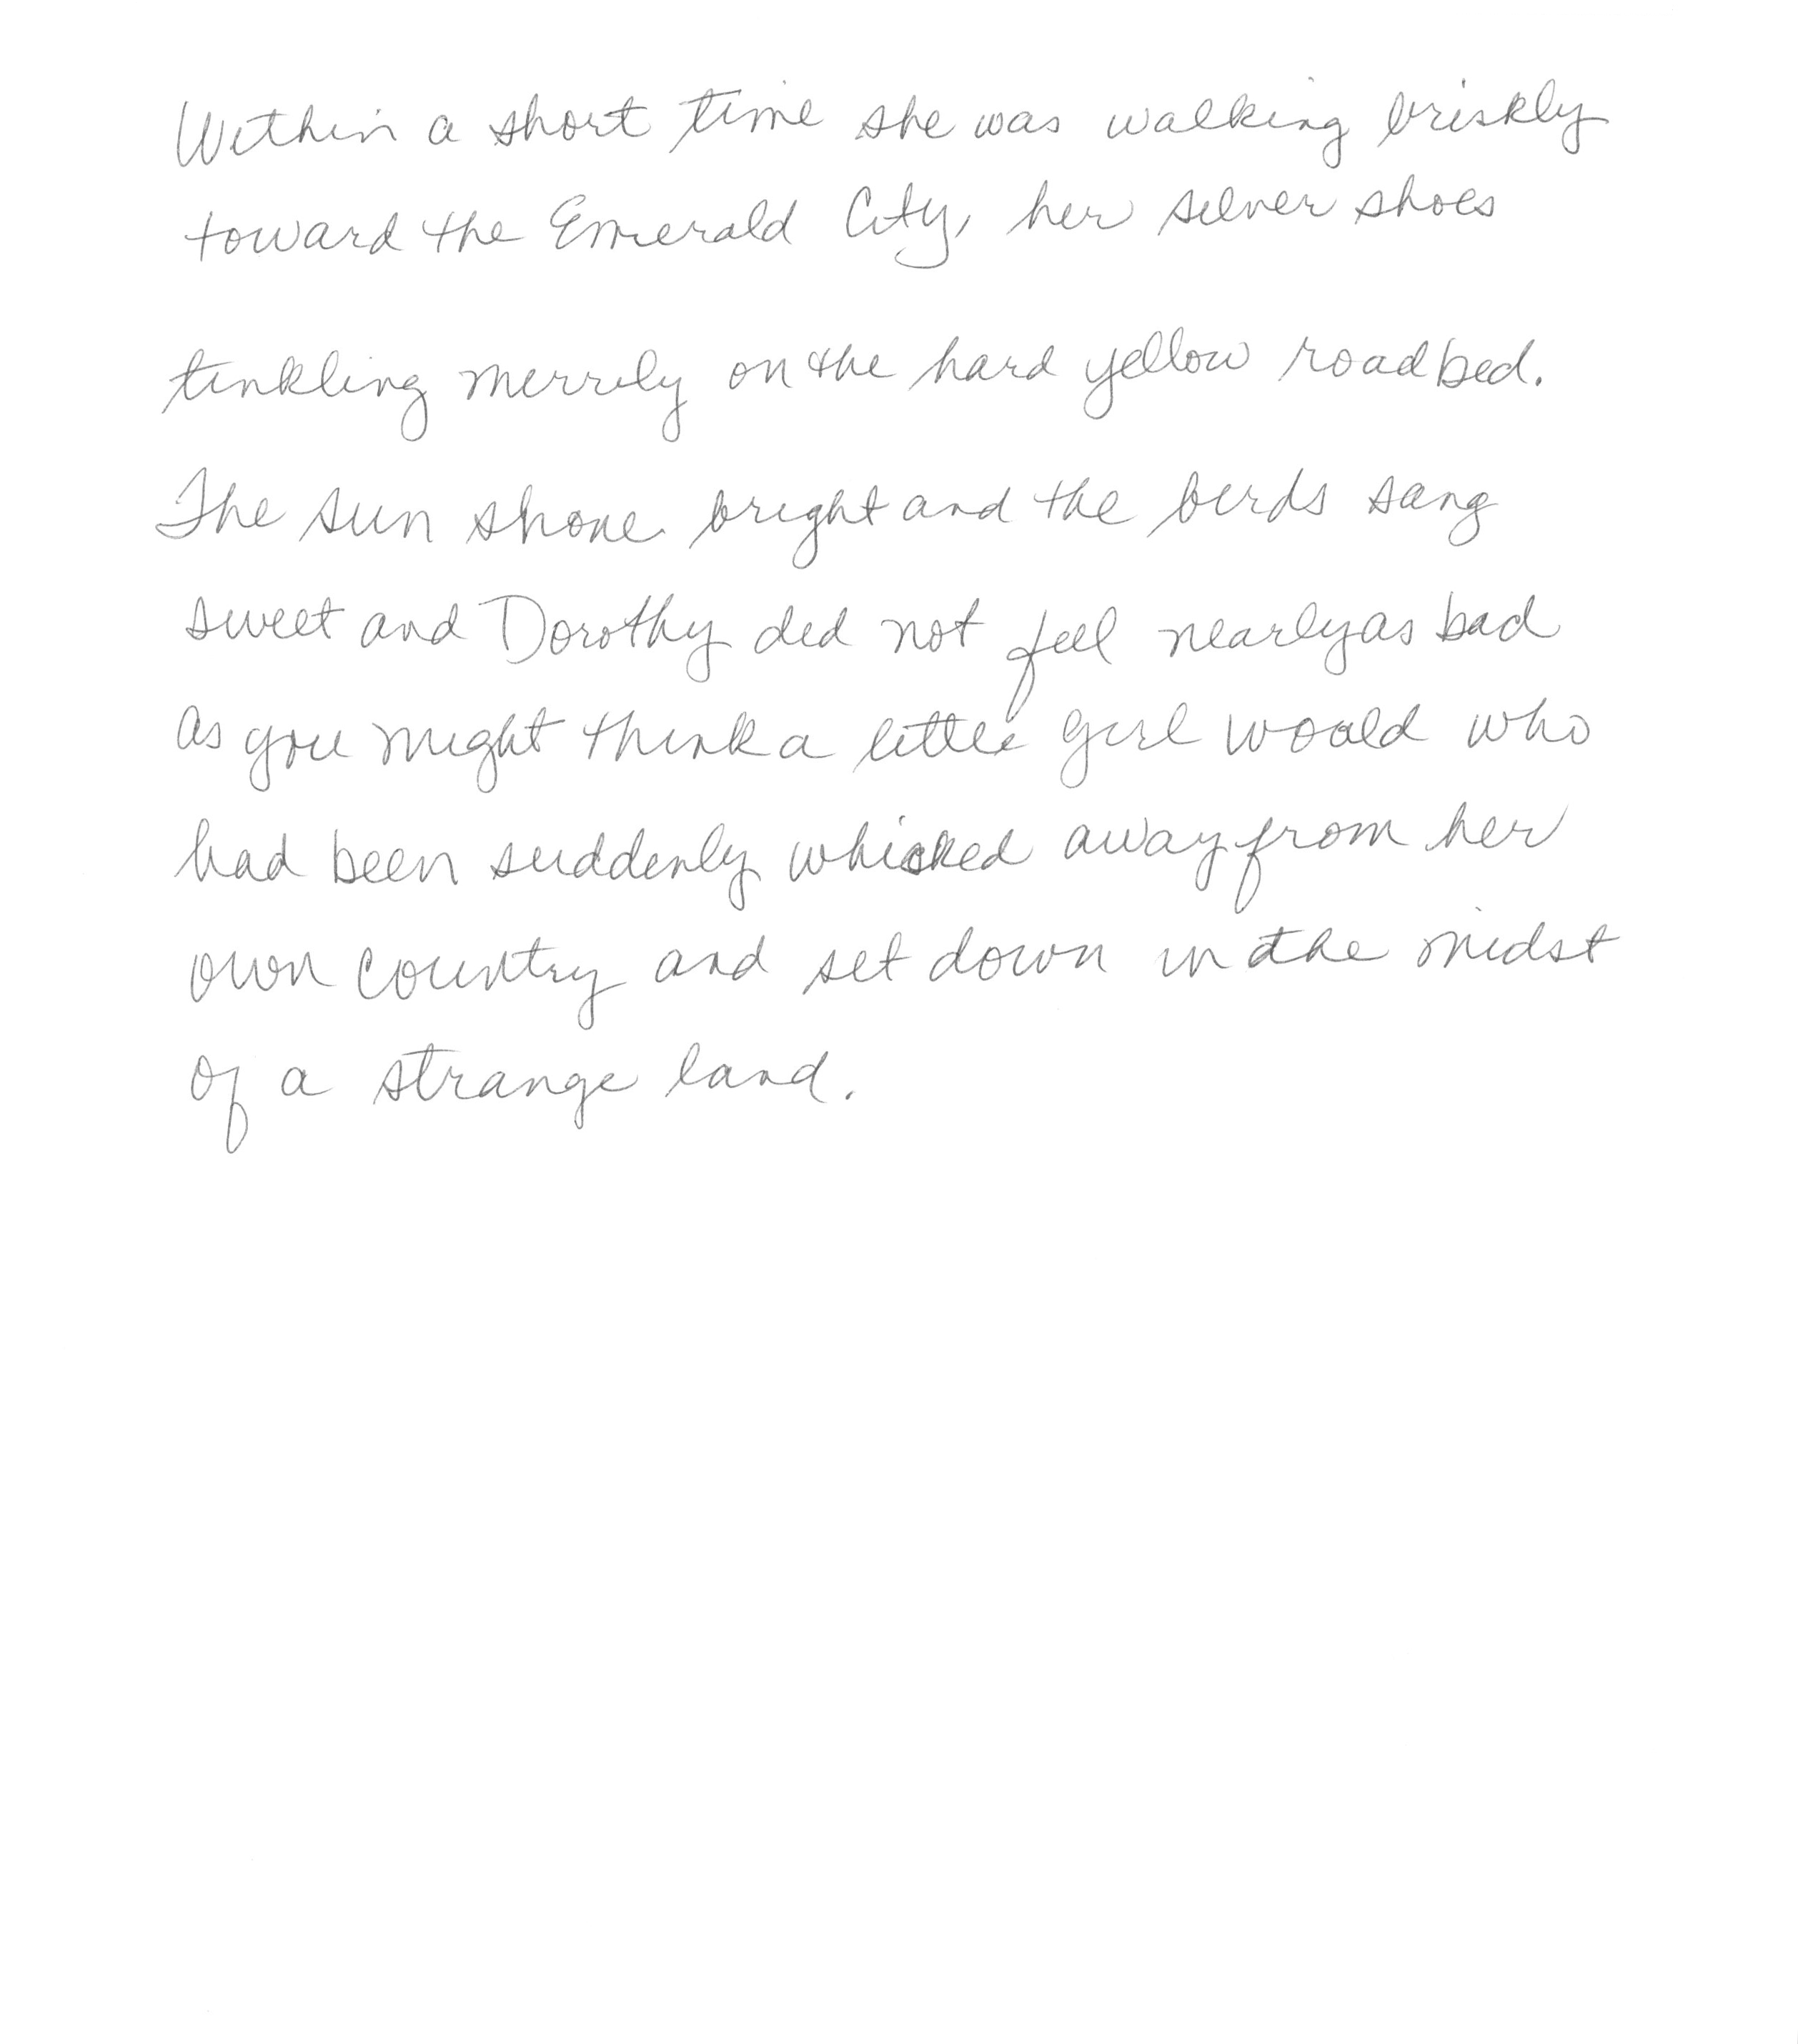 Within a short time she was walking briskly
toward the Emerald City, her silver shoes
tinkling merrily on the hard yellow roadbed.
The sun shone bright and the birds sang
sweet and Dorothy did not feel nearly as bad
as you might think a little girl would who
had been suddenly whisked away from her
own country and set down in the midst
of a strange land.